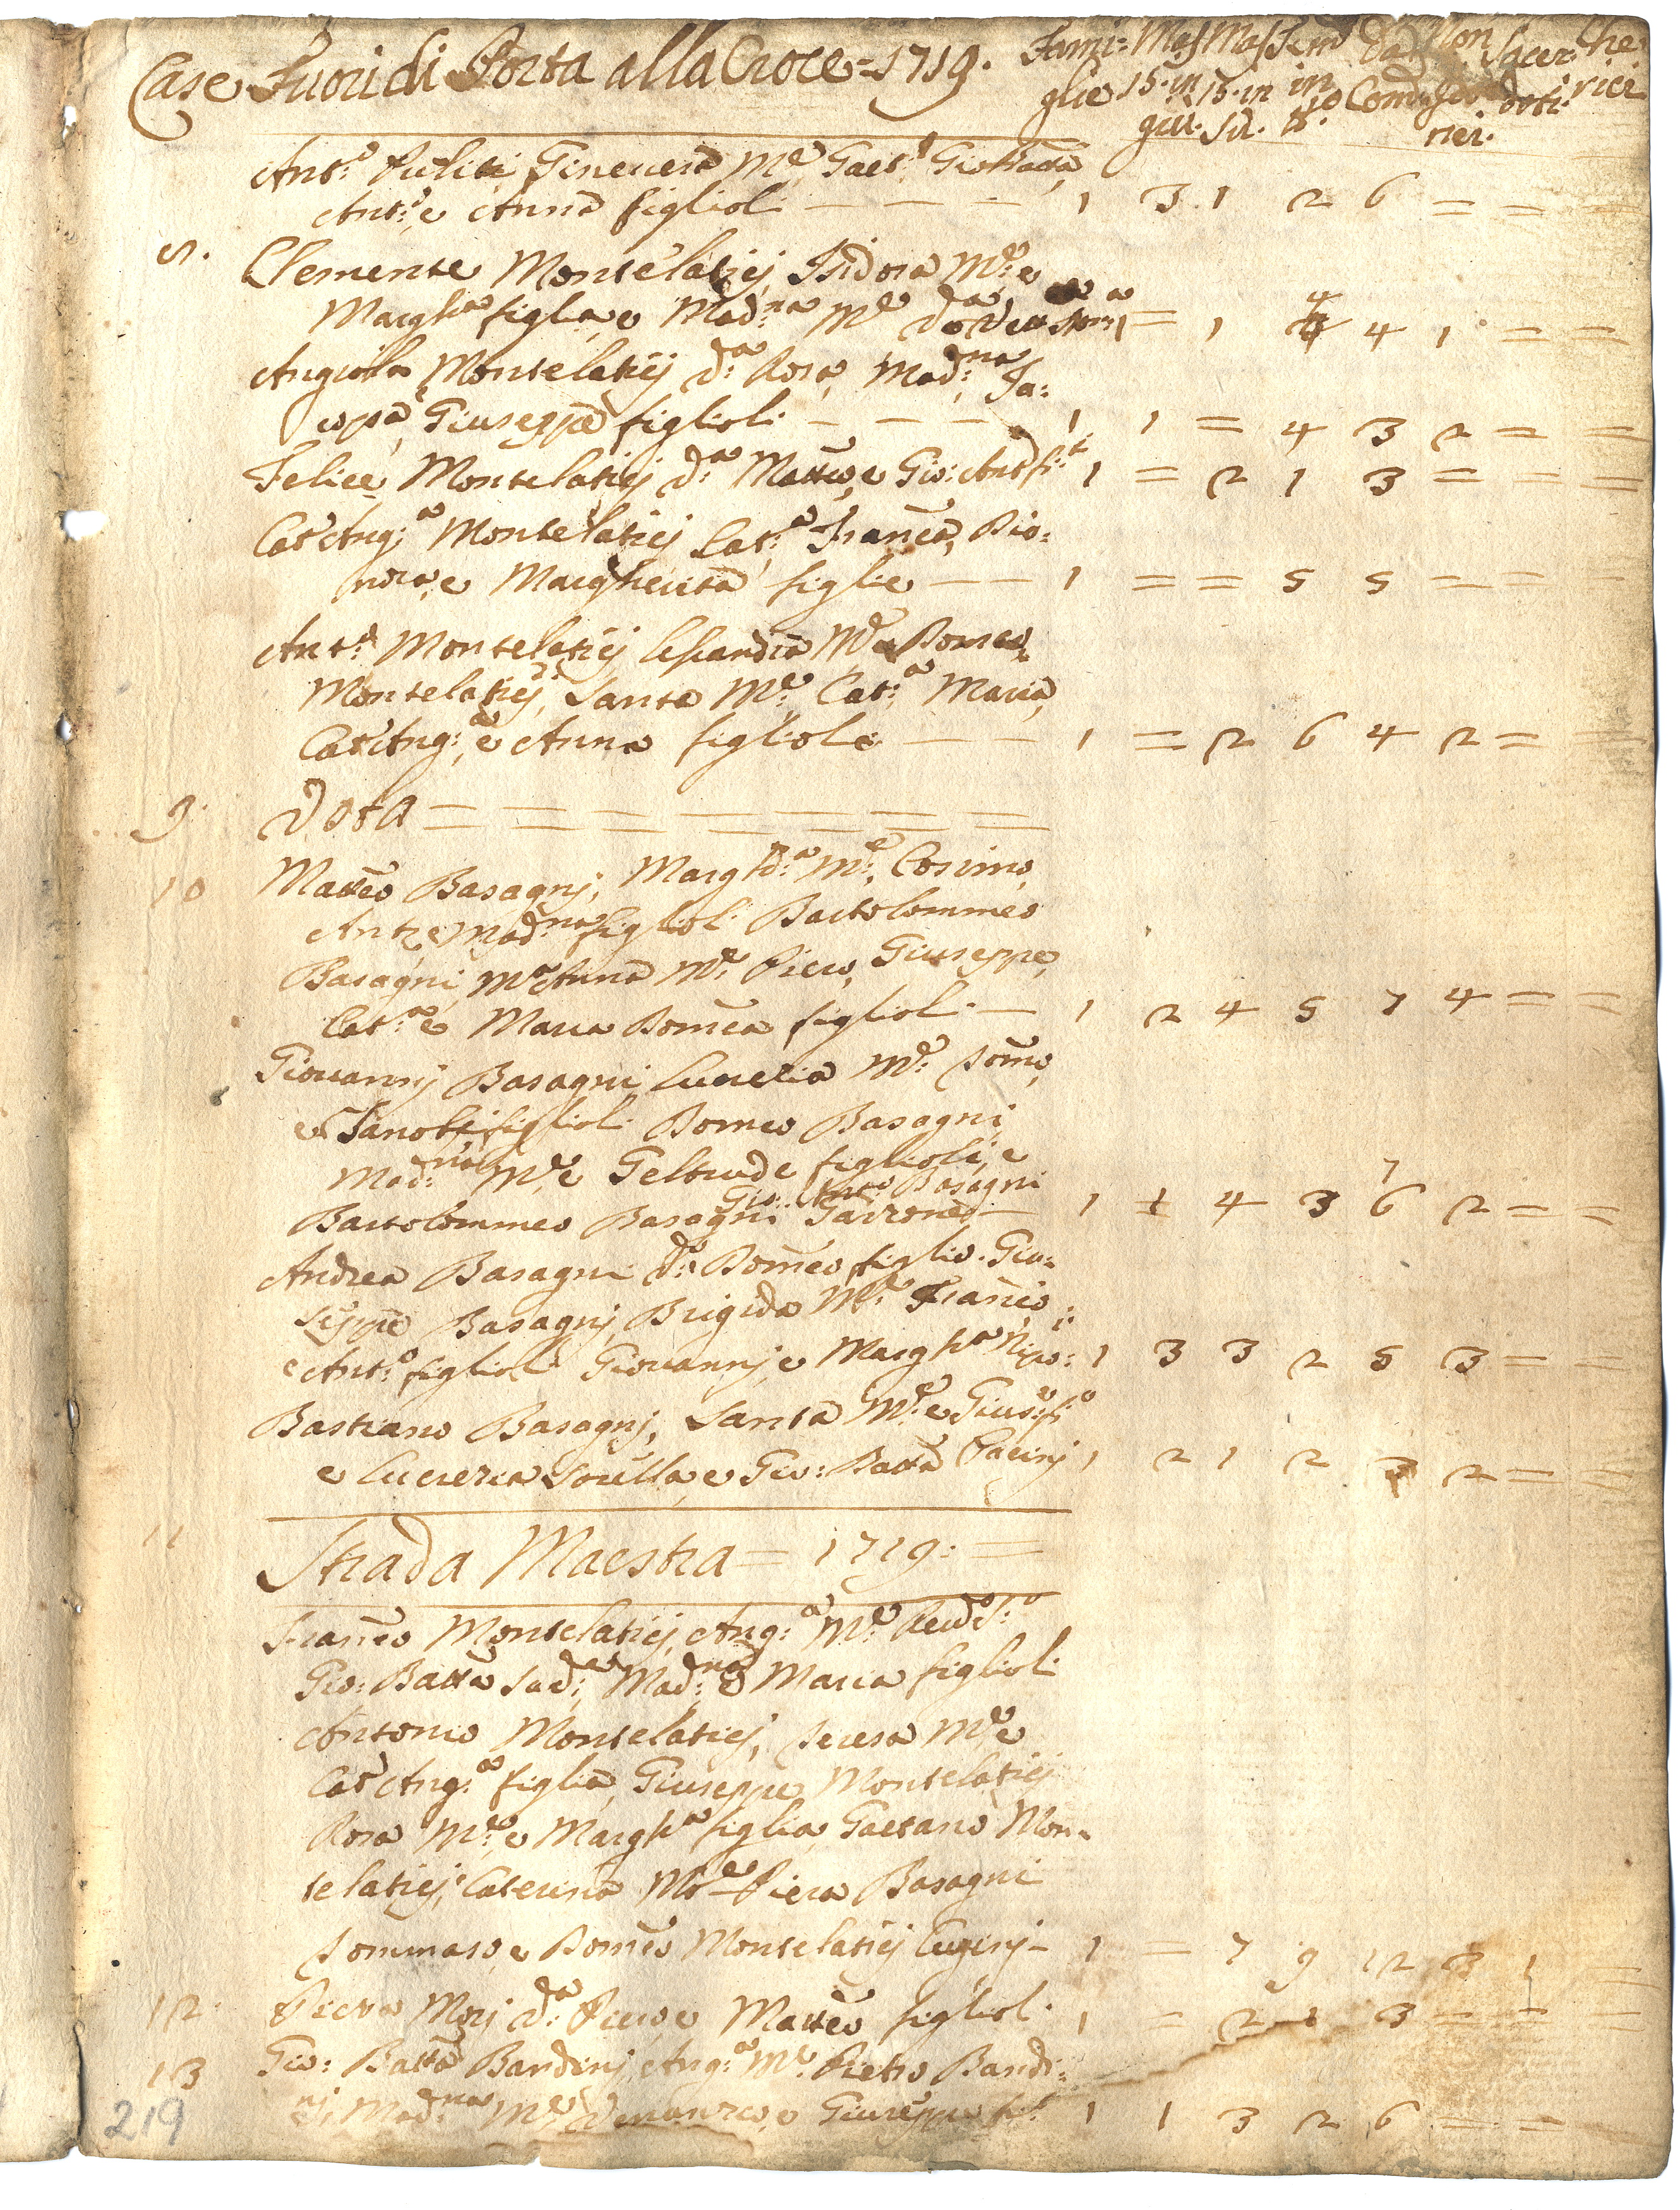 Case Fuori di Porta alla Croce = 1719. Fami= Mas Mas Fem Da Non Sacer Che
glie 15. in 15. in in Com doti. rici
giu. Su. nei.
Ant:o Pulitj Gineuera M:e Gaet:o Gio Batta,
Ant:o e Anna figlioli — — — 1 3 1 2 6 = = =
8. Clemente Montelaticj, Isidora M:e e
Margh:a figlia, e Mad:na M:e = 1 4 1 = =
Angiola Montelaticj d:a Rosa, Mad:na, Ja=
copa, Giuseppa figlioli — — — 1 1 = 4 3 2 = =
Felice Montelaticj d:a Matteo, e Gio: Ant:o fi:li 1 = 2 1 3 = = =
Cat:a Ang:a Montelaticj Cat:a Franca, Dio=
nora, e Margherita figlie — — 1 = = 5 5 = = =
Ant:o Montelaticj Lisandra M:e Domeo,
Montelaticj, Santa M:e Cat:a Maria,
Cat:a Ang:a e Anna figliole — — 1 = 2 6 4 2 = =
9. Vota = = = = = = =
10 Matteo Basagnj, Margh:a M:e, Cosimo,
Ant:o, e Mad:na figlioli Bartolommeo
Basagni, M:a Anna M:e Piero, Giuseppe,
Cat:a e Maria Domca figlioli — 1 2 4 5 7 4 = =
Giouannj Basagni Lucrezia M:e Tomo,
e Zanobj figlioli Domco Basagni,
Mad:na M:e Geltrude figlioli, e
Gio: Ant:o Basagni
7
Bartolommeo Basagni Garzone — 1 1 4 3 6 2 = =
Andrea Basagni d:o Domco figlio. Giu=
seppe Basagnj Brigida M:e Franco,
e Ant:o figlioli Giouannj, e Margh:a Nipo:ti 1 3 3 2 5 3 = =
Bastiano Basagnj, Santa M:e e Gius:e fi:o
e Lucrezia Sorella, e Gio: Batta Pacinj 1 2 1 2 3 2 = =
11 Strada Maestra = 1719: =
Franco Montelaticj, Ang:a M:e Reud:o S:r
Gio: Batta Sad:e, Mad:na e Maria figlioli
Antonio Montelaticj, Teresa M:e e
Cat:a Ang:a figlia, Giuseppe Montelaticj
Rosa M:e, e Margh:a figlia, Gaetano Mon=
telaticj, Caterina M:e Piera Basagni
Tommaso, e Domco Montelaticj Cuginj — 1 = 7 9 12 3 1 =
12 Piera Morj d:a Piero, e Matteo figlioli 1 = 2 1 3 = = =
13 Gio: Batta Bandinj Ang:a M:e Pietro Bandi=
nj, Mad:na M:e Vincenzo, e Giuseppe fi:li 1 1 3 2 6 = = =
219